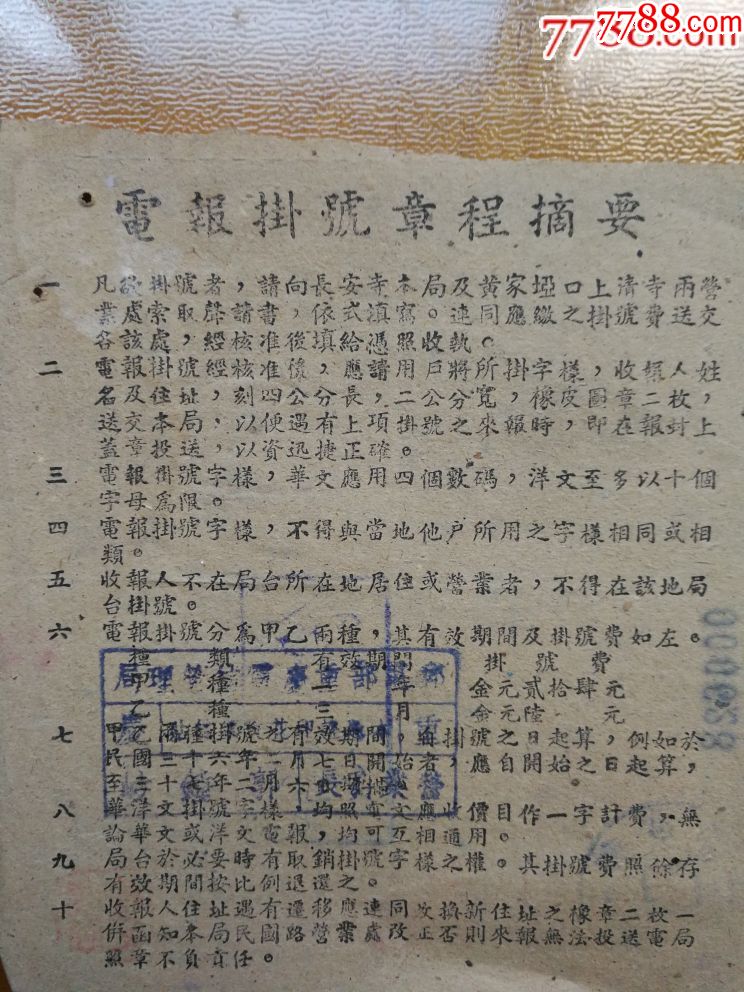 7788.com
7788.com
電報掛號章程摘要
一 凡欲掛號者，請向長安寺本局及黃家埡口上清寺兩營
業處索取聲請書，依式填寫。連同應繳之掛號費送交
各該處，經核准後填給憑照收執。
二 電報掛號經核准後，應請用戶將所掛字樣，收報人姓
名及住址，刻四公分長，二公分寬，橡皮圖章二枚，
送交本局，以便遇有上項掛號之來報時，即在報封上
蓋章投送，以資迅捷正確。
三 電報掛號字樣，華文應用四個數碼，洋文至多以十個
字母為限。
四 電報掛號字樣，不得與當地他戶所用之字樣相同或相
類。
五 收報人不在局台所在地居住或營業者，不得在該地局
台掛號。
六 電報掛號分為甲乙兩種，其有效期間及掛號費如左。
種類 有效期間 掛號費
甲種 一年 金元貳拾肆元
乙種 三月 金元陸元
七 甲乙兩種掛號有效期間，自掛號之日起算，例如於
民國三十六年 月 日開始 應自開始之日起算，
至
八 華洋文掛號字樣 均照 文應收價目作一字計費，無
論華文或洋文電報，均可互相通用。
九 局台於必要時有取銷掛號字樣之權。其掛號費照餘存
有效期間按比例退還之。
十 收報人住址遇有遷移應連同改換新住址之橡章二枚一
併函知本局民國路營業處改正否則來報無法投送電局
照章不負責任
000638